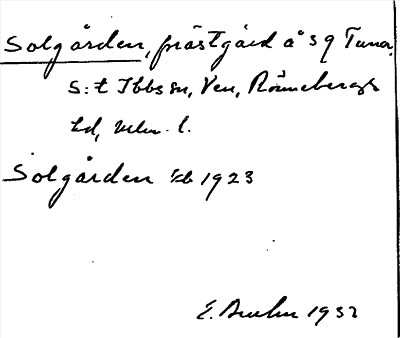 Solgården, prästgård å s 9 Tuna,
S:t Ibbs sn, Ven, Rönnebergs
hd, Mlm. l.
Solgården kb 1923
E. 1932